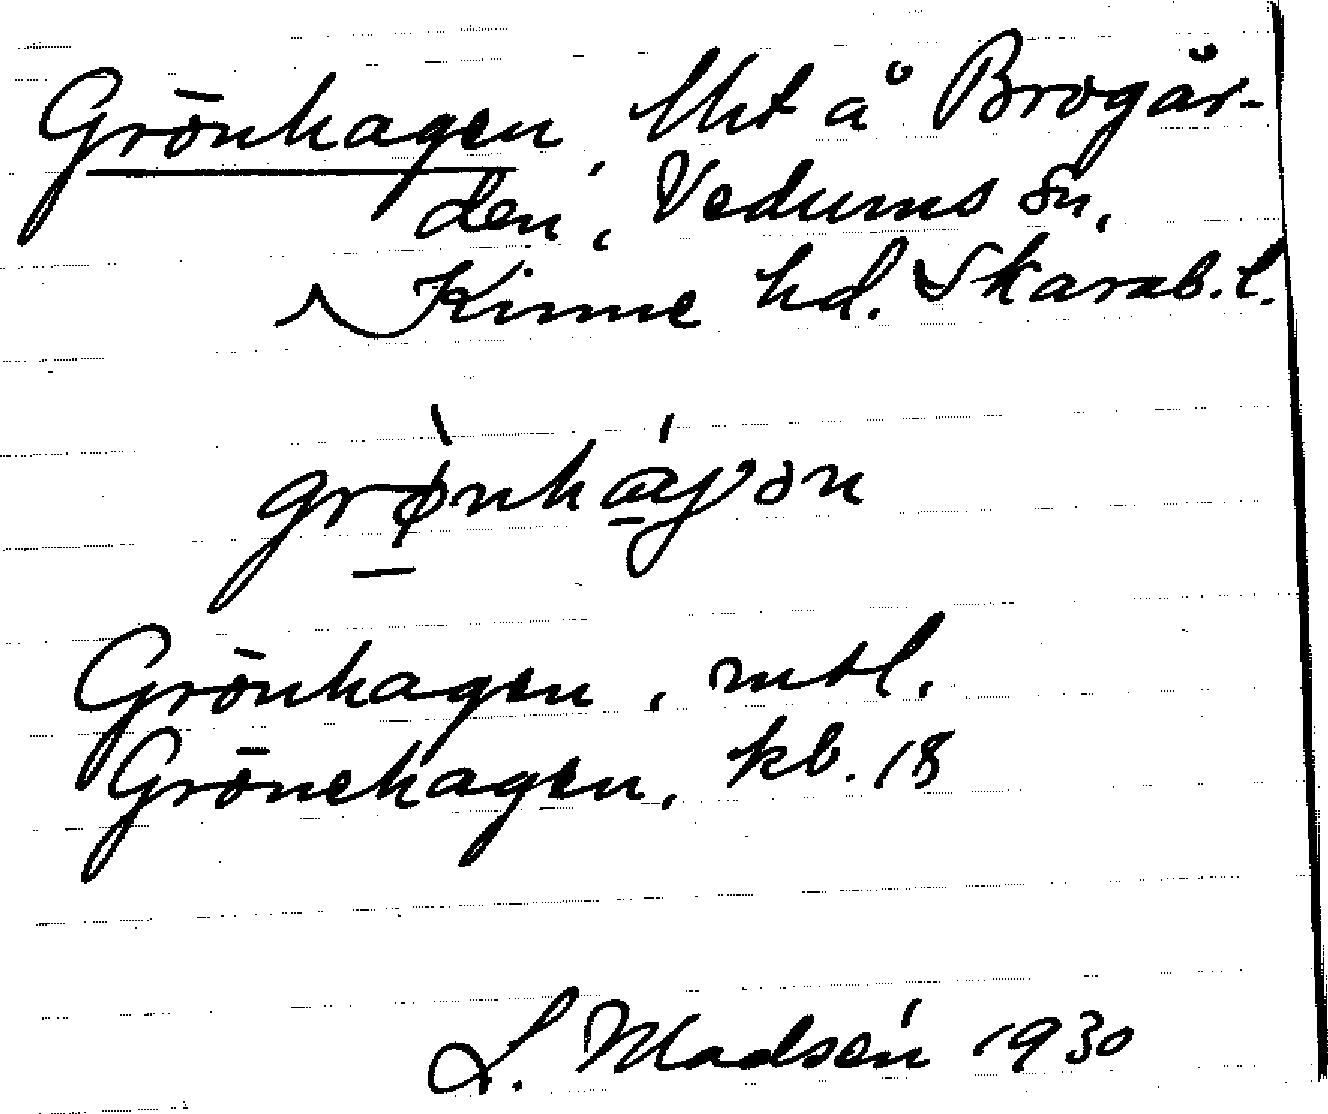 Grönhagen, lht å Brogår-
den, Vedums sn,
Kinne hd. Skarab. l.
grø̀nháɡən
Grönhagen, mtl.
Grönehagen, kb. 18
L. Madsén 1930